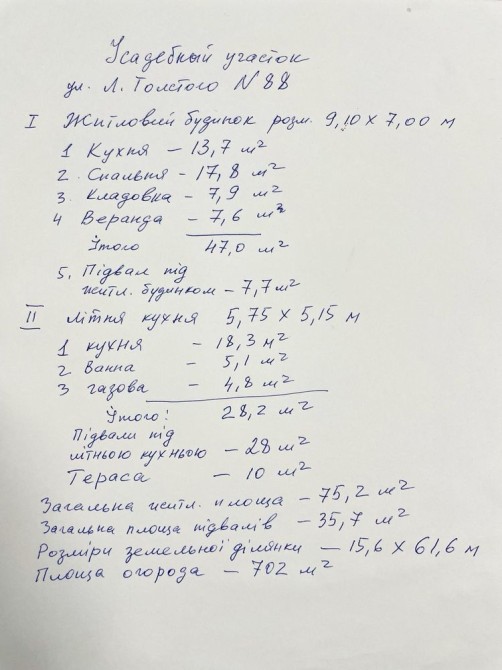 Усадебный участок
ул. Л. Толстого N 88
I Житловий будинок розм. 9,10 x 7,00 м
1 Кухня – 13,7 м²
2. Спальня – 17,8 м²
3. Кладовка – 7,9 м²
4 Веранда – 7,6 м²
Итого 47,0 м²
5. Підвал під
житл. будинком – 7,7 м²
II Літня кухня 5,75 x 5,15 м
1 кухня – 18,3 м²
2 Ванна – 5,1 м²
3 газова – 4,8 м²
Итого! 28,2 м²
Підвали під
літньою кухньою – 28 м²
Тераса – 10 м²
Загальна житл. площа – 75,2 м²
Загальна площа підвалів – 35,7 м²
Розміри земельної ділянки – 15,6 x 61,6 м
Площа огорода – 702 м²